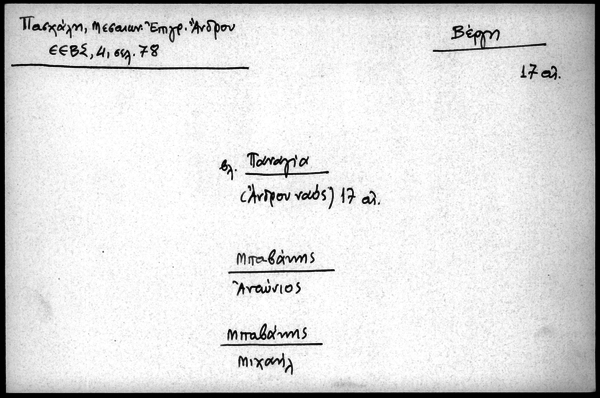 Πασχάλη, Μεσαιων. Ἐπιγρ. Ἄνδρου
ΕΕΒΣ, 4, σελ. 78
Βέργη
17 αι.
βλ. Παναγία
(Ἄνδρου ναός) 17 αι.
Μπαβάκης
Μπαβάκης
Μιχαήλ